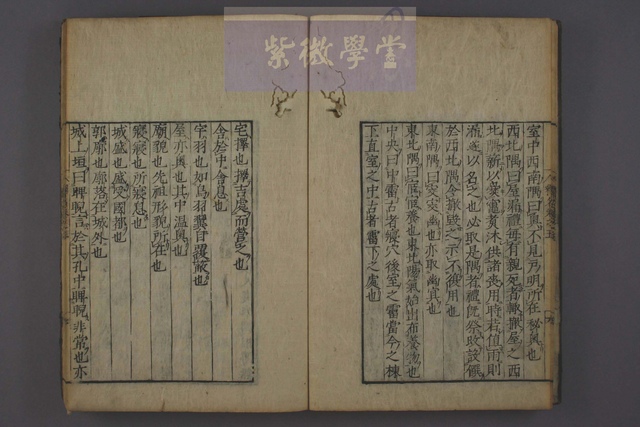 紫微學堂
室中西南隅曰奧不見戶明所在秘奧也
西北隅曰屋漏禮每有親死者輒撤屋之西
北隅薪以爨竈煮沐供諸喪用時若值雨則
漏遂以名之也必取是隅者禮既祭改設饌
於西北隅今撤毀之示不復用也
東南隅曰窔窔幽也亦取幽冥也
東北隅曰宧宧養也東北陽氣始出布養物也
中央曰中霤古者寢穴後室之霤當今之棟
下直室之中古者霤下之處也
宅擇也擇吉處而營之也
舍於中舍息也
宇羽也如鳥羽翼自覆蔽也
屋亦奧也其中溫奧也
廟貌也先祖形貌所在也
寢寢也所寢息也
城盛也盛受國都也
郭廓也廓落在城外也
城上垣曰睥睨言於其孔中睥睨非常也亦